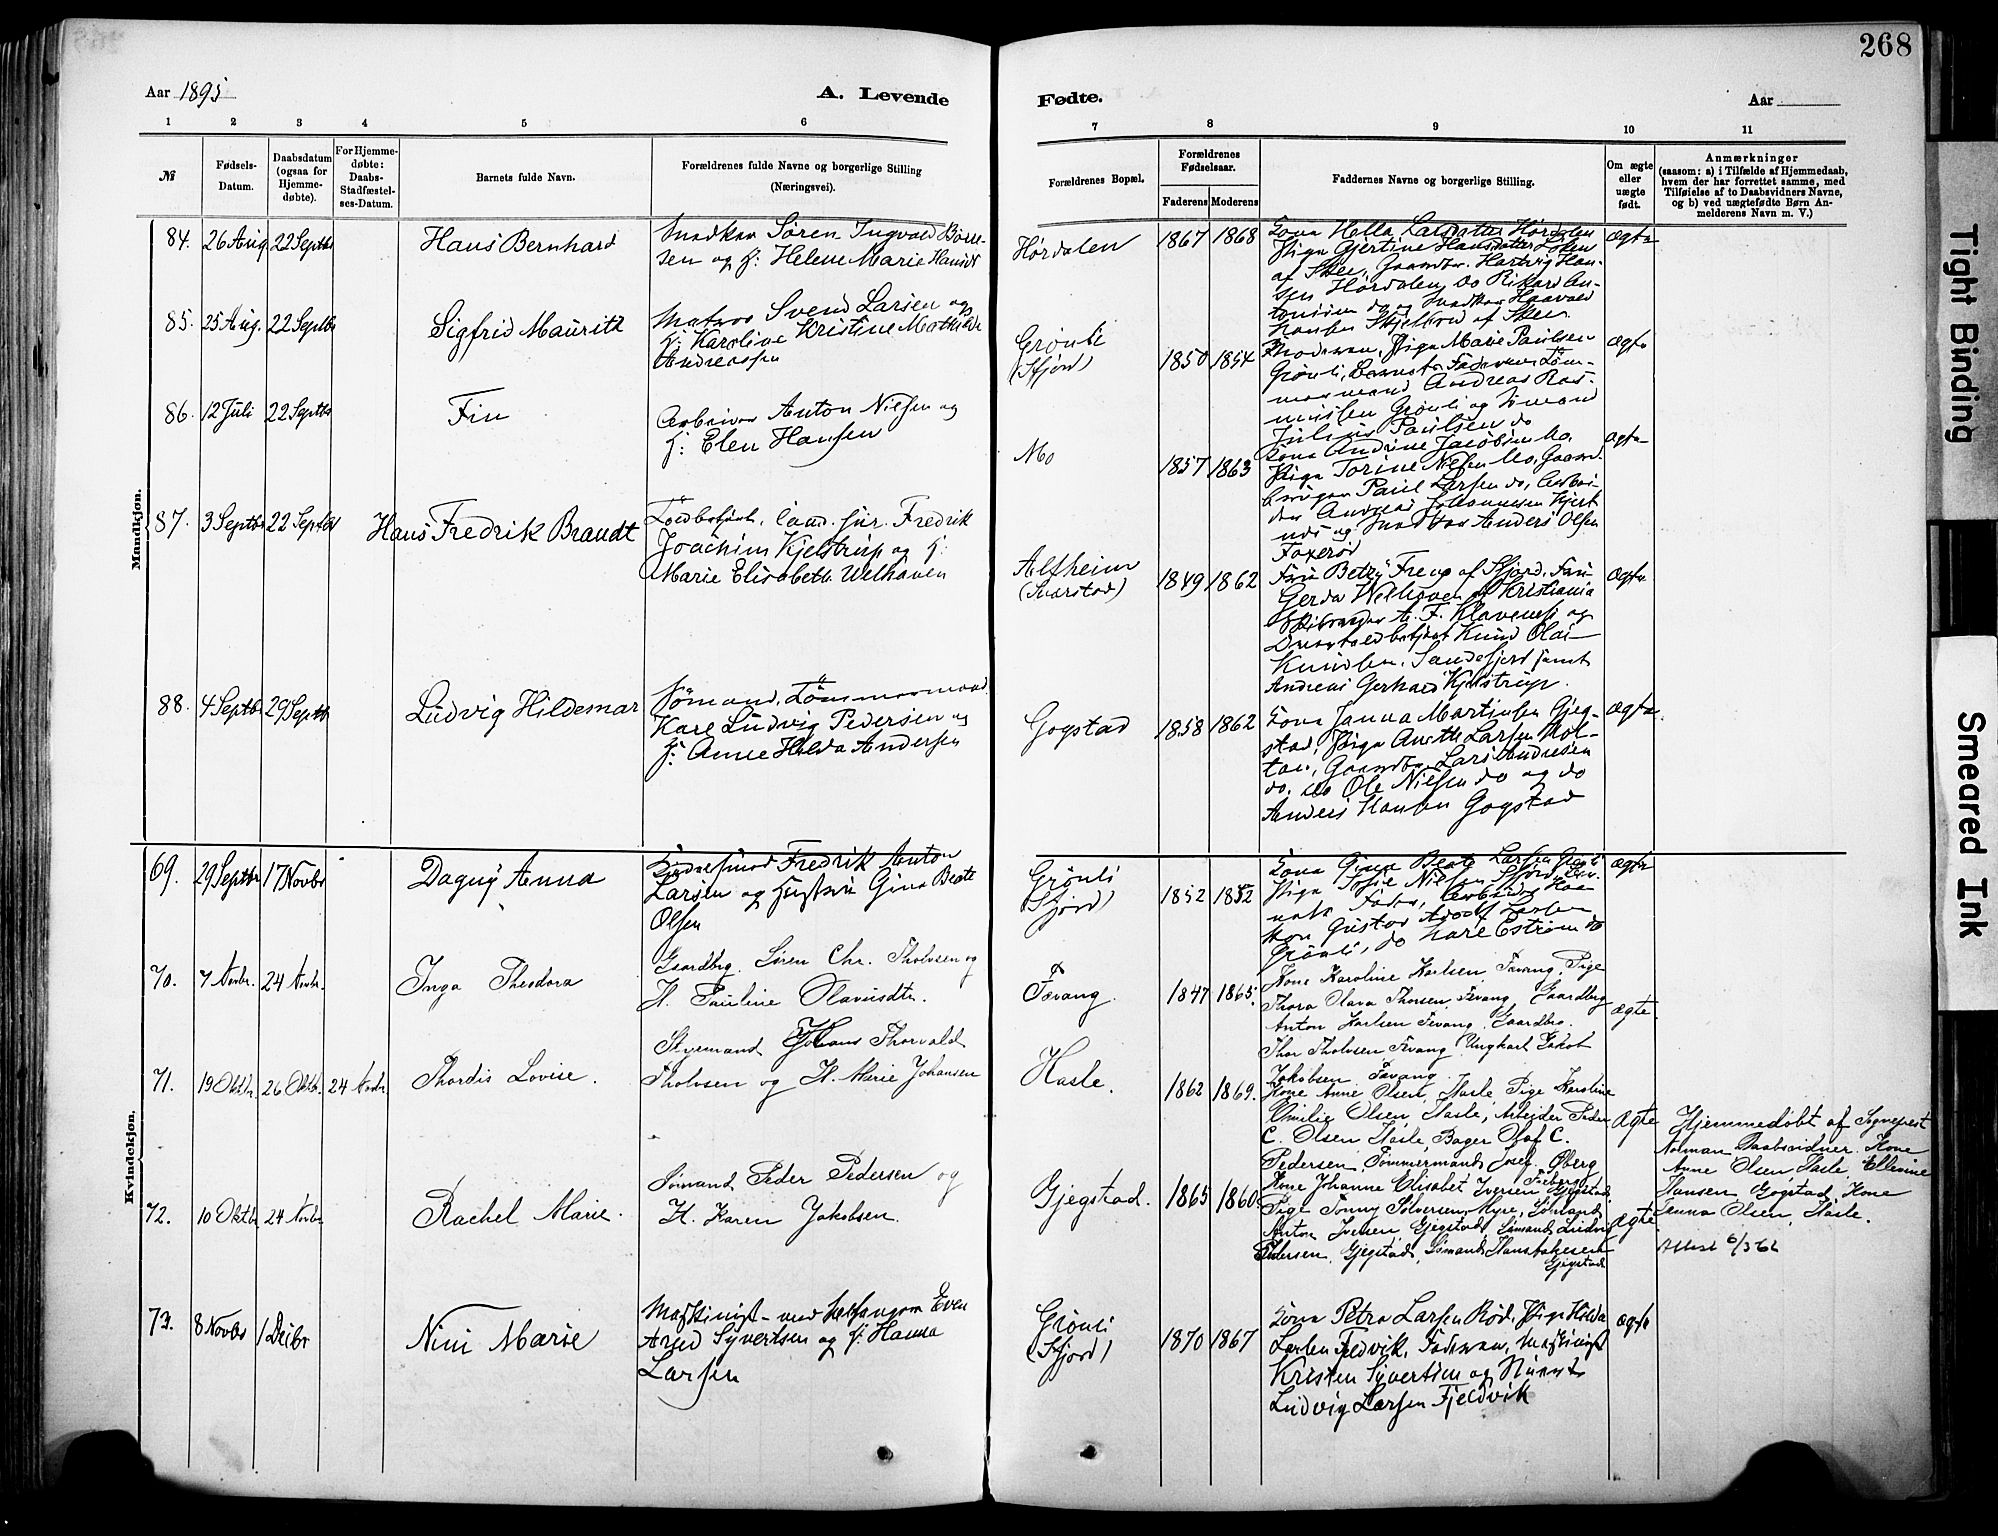 268
Aar 1895
A. Levende
Fødte.
Aar
1 2 3 4 5 6 7 8 9 10 11
№
Fødsels-
Datum.
Daabsdatum
(ogsaa for
Hjemme-
døbte).
For Hjemme-
døbte:
Daabs-
Stadfæstel-
ses-Datum.
Barnets fulde Navn.
Forældrenes fulde Navne og borgerlige Stilling
(Næringsvei).
Forældrenes Bopæl.
Forældrenes
Fødselsaar.
Faderens Moderens
Faddernes Navne og borgerlige Stilling.
Om ægte
eller
uægte
født.
Anmærkninger
(saasom: a) i Tilfælde af Hjemmedaab,
hvem der har forrettet samme, med
Tilføielse af to Daabsvidners Navne,
og b) ved uægtefødte Børn An-
melderens Navn m. V.)
Mandkjøn.
84. 26 Aug. 22 Septbr
Hans Bernhard
Snedker Søren Ingvald Børre-
sen og H: Helene Marie Hansdt
Hørdalen
1867 1868
Kona Hella Larsdatter Hørdalen
Pige Gjertine Hansdatter
af Skee, Gaardbr. Hartvig Han-
sen Hørdalen, do Rikard An-
tonisen do og Snedker Haavald
Hansen af Skee.
ægte
85. 25 Aug. 22 Septbr
Sigfrid Mauritz
Matros Svend Larsen og
H: Karoline Kristine Mathilde
Andreassen
Grønli
(Sfjord)
1850 1854
Moderen, Pige Marie Paulsen
Grønli, Barnets Faderen, Töm-
mermand Andreas Ras-
mussen Grønli og Sömand
Julius Paulsen do
ægte
86. 12 Juli 22 Septbr
Fin
Arbeider Anton Nielsen og
H: Elen Hansen
Mo
1857 1863
Kona Andrine Jacobsen Mo,
Pige Torine Nielsen Mo, Gaard-
bruger Paul Larsen do, Arbei-
der Andreas Johannesen
og Snedker Anders Olsen
ægte
87. 3 Septbr 22 Septbr
Hans Fredrik Brandt
Toldbetjent, Cand. jur. Fredrik
Joachim Kjelstrup og H:
Marie Elisabeth Welhaven
Alfheim
(Svarstad)
1849 1862
Frue Betzy af Sfjord, Frue
Gerda Welhaven af Kristiania
A. F. Klaveness og
Knud Olai
Knudsen, Sandefjord samt
Andreas Gerhard Kjelstrup.
ægte
88. 4 Septbr 29 Septbr
Ludvig Hildemar
Sømand, Tømmermand
Karl Ludvig Pedersen og
H: Anne Hilda Andersen
Gogstad
1858 1862
Kona Janna Martinsen Gjeg-
stad, Pige Anette Larsen Hol-
tan, Gaardbr. Lars Andresen
do, do Ole Nielsen do og do
Anders Hansen Gogstad
ægte
Kvindekjøn.
69. 29 Septbr 17 Novbr
Dagny Anna
Fredrik Anton
Larsen og Hustru Gina Beate
Olsen
Grønli
Sfjord
1852 1852
Kona Gina Beate Larsen Grønli
Pige Sofie Nielsen Sfjord, Bar-
nets Fader, Arbeider Haa-
kon Gustav Adolf Larsen
Grønli, do Karl Estrøm do
ægte
70. 7 Novbr. 24 Novbr.
Inga Theodora
Gaardbrg. Søren Chr. Tholvsen og
H. Pauline Olavusdtr.
Fævang.
1847 1865.
Kone Karoline Karlsen Fævang, Pige
Thora Olava Thorsen Fevang, Gaardbrg
Anton Karlsen Fevang, Gaardbrg.
Thor Tholvsen Fevang, Ungkarl Jakob
Jakobsen Fævang.
ægte.
71. 19 Oktbr. 26 Oktbr. 24 Novbr.
Thordis Lovise.
Styrmand Johans Thorvald
Tholvsen og H. Marie Johansen
Hasle.
1862 1869.
Kone Anne Olsen, Hasle, Pige Karoline
Emilie Olsen, Hasle, Arbeider Peder
C. Olsen Hasle, Bager Olaf C.
Pedersen, Tømmermand Josef Øberg
Ægte
Hjemmedøbt af Sogneprest
Nolman Daabsvidner. Kone
Anne Olsen, Hasle, Ellevine
Hansen, Gogstad, Kone
Janna Olsen, Hasle.
72. 10 Oktbr. 24 Novbr.
Rachel Marie.
Sømand Peder Pedersen og
H. Karen Jakobsen.
Gjegstad.
1865 1860.
Kone Johanne Elisabet Iversen Gjegstad,
Pige Tonny Solversen, Myre, Sømand
Anton Iversen, Gjegstad, Sømand Ludvig
Pedersen, Gjegstad, Sømand Hans Jakobsen
Gjegstad
Ægte
Attest 6/3 62
73. 8 Novbr 1 Decbr
Nini Marie
Maskinist ved Hvalfangern Even
Areld Syvertsen og H: Hanna
Larsen
Grönli
(Sfjord)
1870 1867
Kona Petra Larsen Rød, Pige Hilda
Larsen Fjeldvik, Faderen, Maskinist
Kristen Syvertsen og
Ludvig Larsen Fjeldvik
ægte
Tight Binding
Smeared Ink